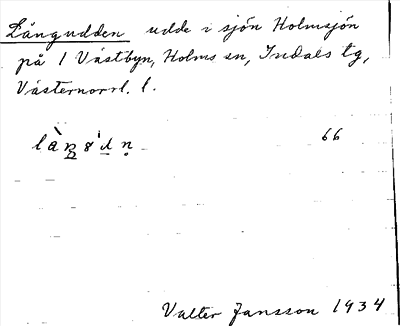 Långudden udde i sjön Holmsjön
på 1 Västbyn, Holms sn, Indals tg,
Västernorrl. l.
66
Valter Jansson 1934